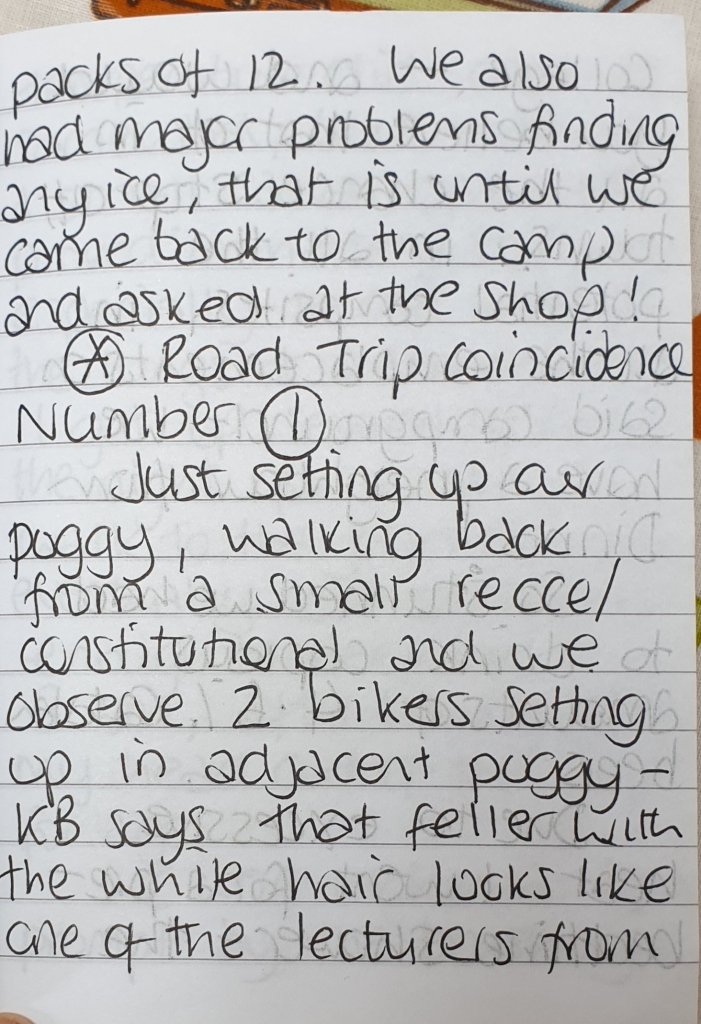 packs of 12. We also
had major problems finding
any ice, that is until we
came back to the camp
and asked at the shop!
Ⓐ Road Trip coincidence
Number ①
Just setting up our
puggy, walking back
from a small recce/
constitutional and we
observe 2 bikers setting
up in adjacent puggy –
KB says that feller with
the white hair looks like
one of the lecturers from